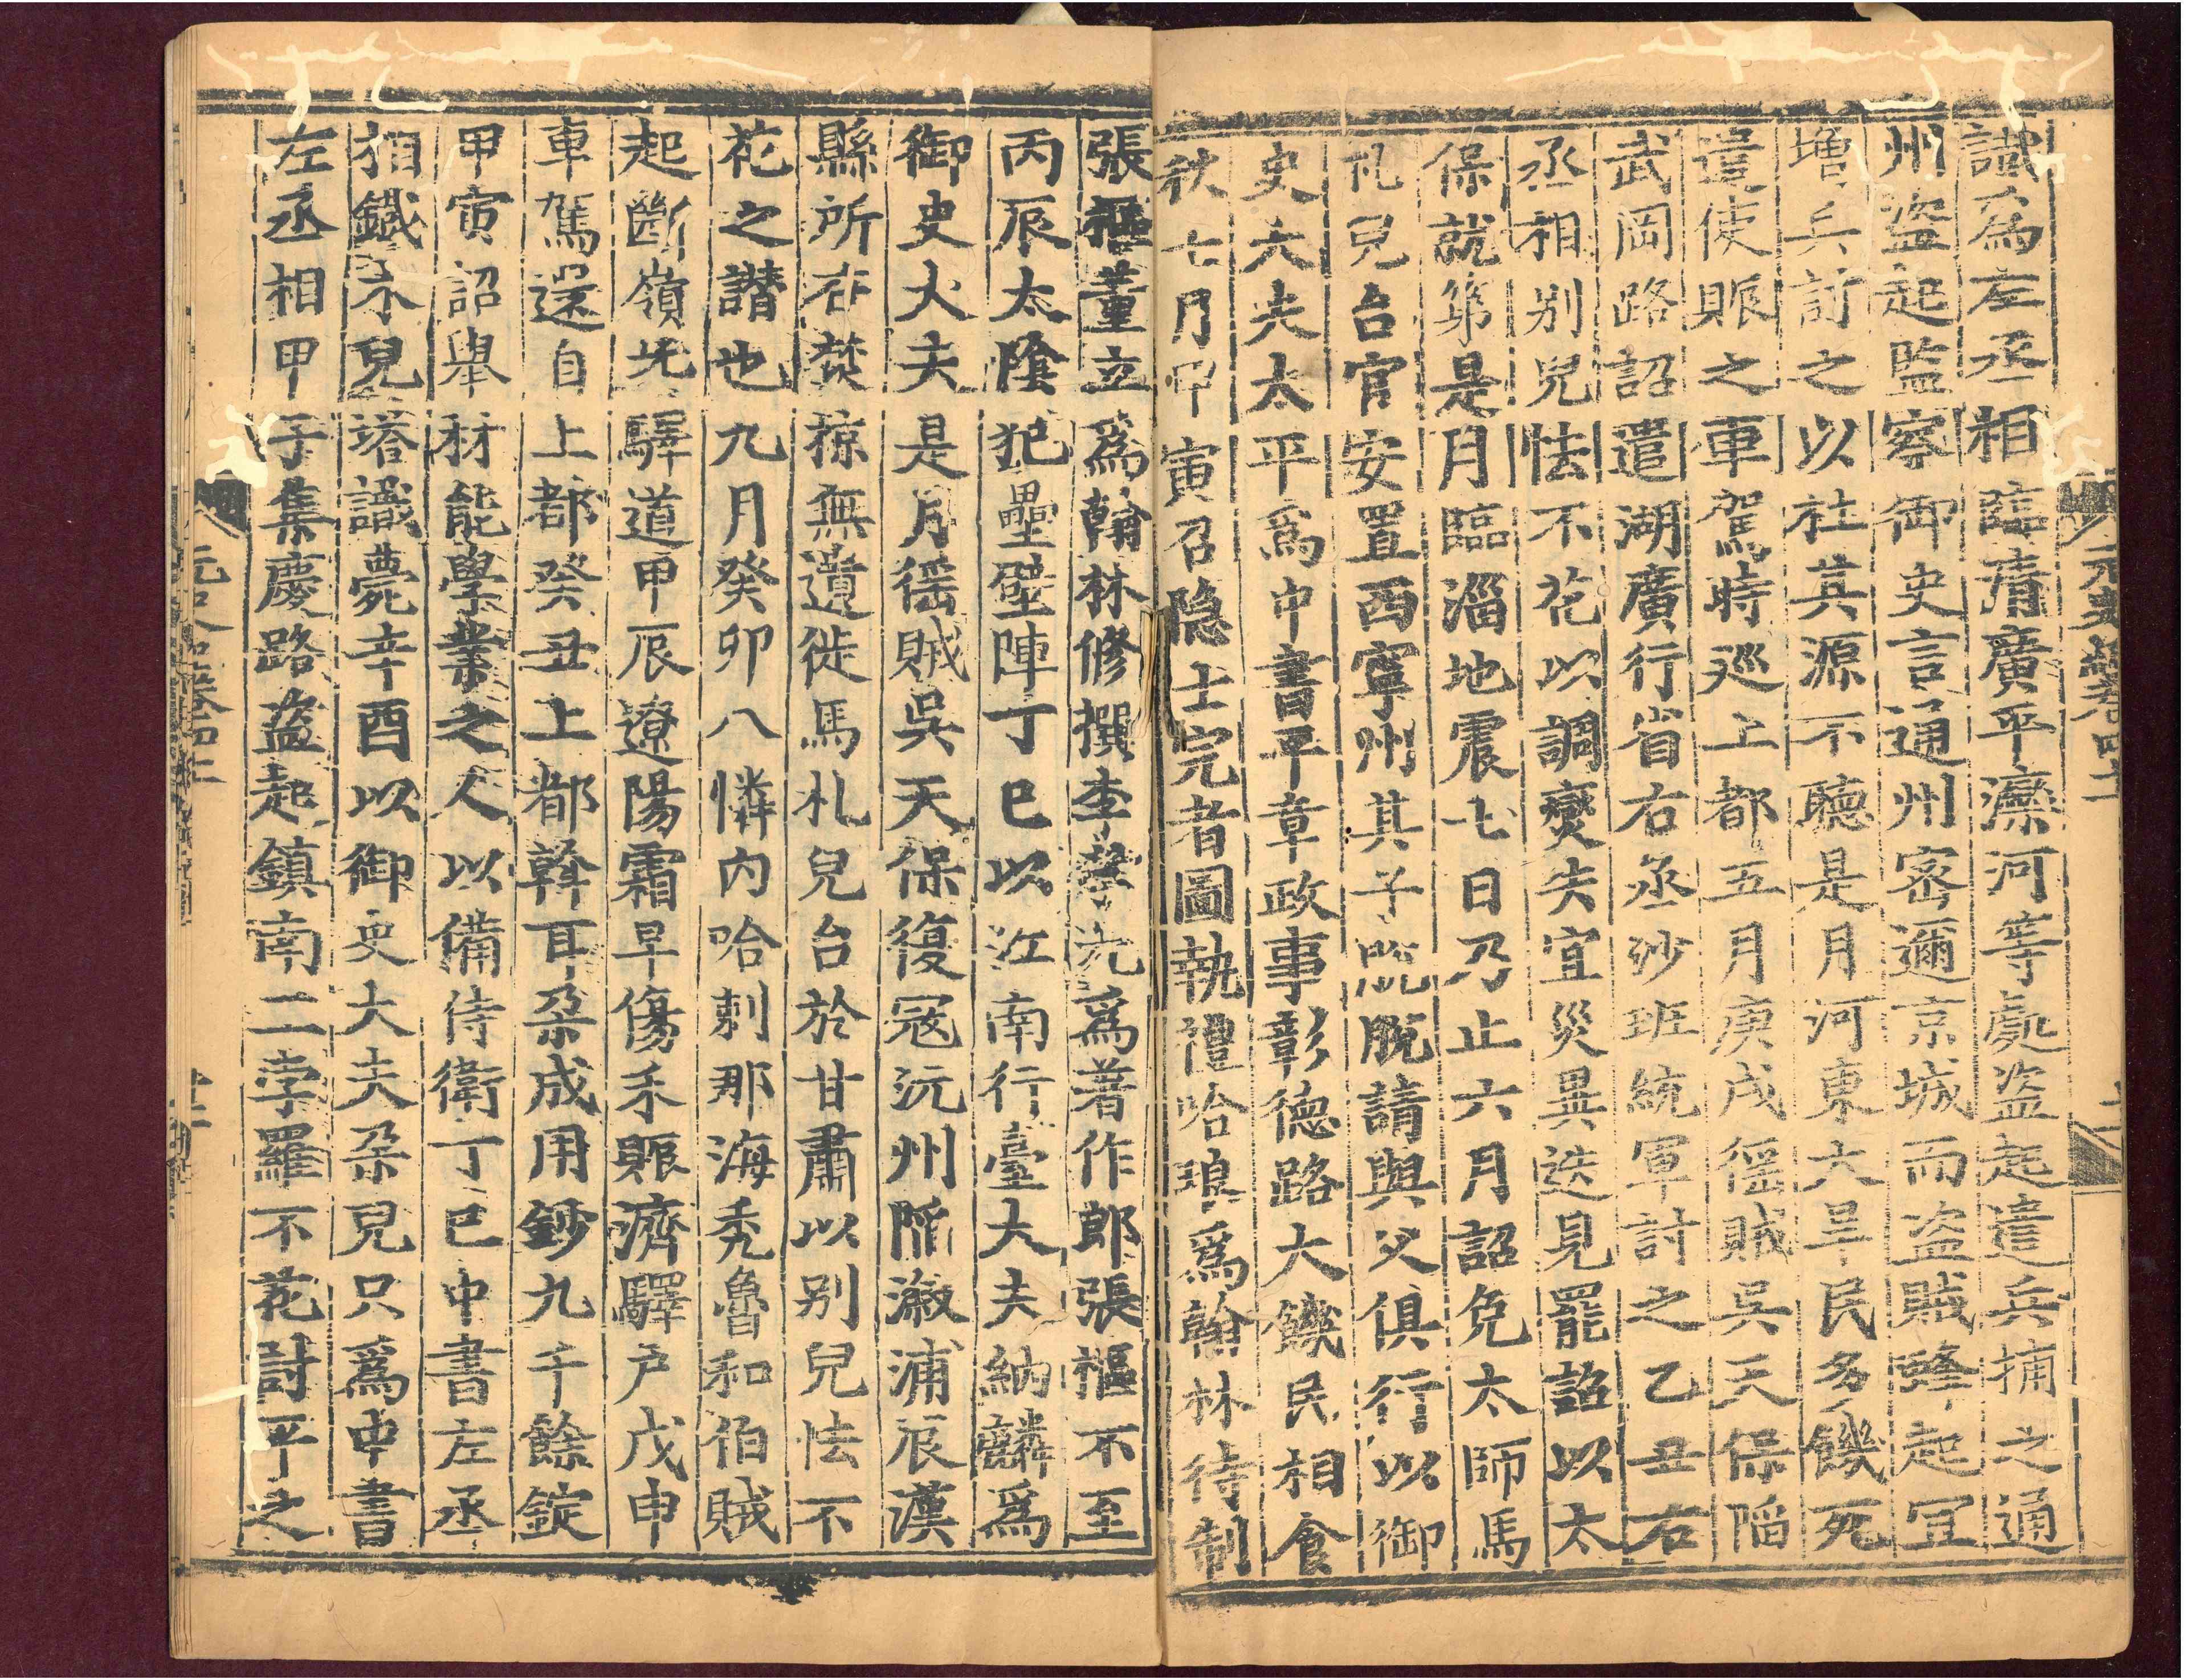 元史紀卷四十一
十二
識為左丞相臨清廣平灤河等處盜起遣兵捕之通
州盜起監察御史言通州密邇京城而盜賊蜂起宜
增兵討之以杜其源不聽是月河東大旱民多饑死
遣使賑之車駕時巡上都五月庚戌徭賊吳天保陷
武岡路詔遣湖廣行省右丞沙班統軍討之乙丑右
丞相别兒怯不花以調爕失宜災異迭見罷詔以太
保就第是月臨淄地震七日乃止六月詔免太師馬
札兒台官安置西寧州其子脫脫請與父俱行以御
史大夫太平為中書平章政事彰德路大饑民相食
秋七月甲寅召隐士完者圖執禮哈琅為翰林待制
張樞董立為翰林修撰李孝光為著作郎張樞不至
丙辰太陰犯壘壁陣丁巳以江南行臺大夫納麟為
御史大夫是月徭賊吳天保復寇沅州陷漵浦辰漢
縣所在焚掠無遺徙馬札兒台於甘肅以别兒怯不
花之譖也九月癸卯八憐内哈剌那海秃魯和伯賊
起斷嶺北驛道甲辰遼陽霜早傷禾賑濟驛户戊申
車駕還自上都癸丑上都斡耳朶成用鈔九千餘錠
甲寅詔舉材能學業之人以備侍衛丁巳中書左丞
相鐵木兒塔識薨辛酉以御史大夫朶兒只為中書
左丞相甲子集慶路盜起鎮南王孛羅不花討平之